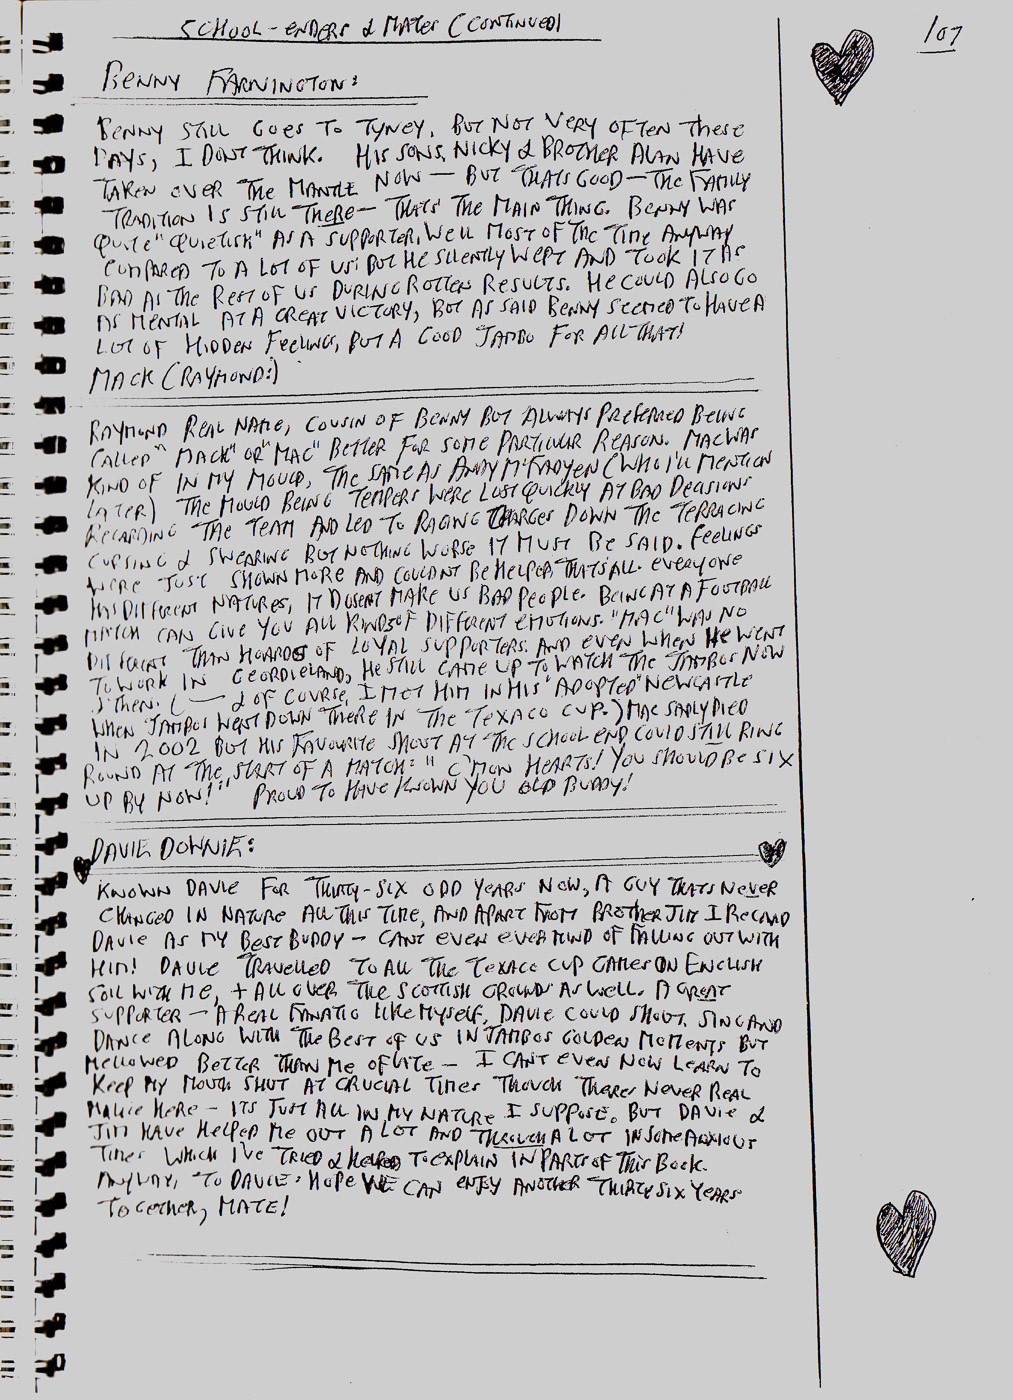 SCHOOL-ENDERS & MATES (CONTINUED)
107
BENNY FARNINGTON:
BENNY STILL GOES TO TYNEY, BUT NOT VERY OFTEN THESE
DAYS, I DONT THINK. HIS SONS, NICKY & BROTHER ALAN HAVE
TAKEN OVER THE MANTLE NOW — BUT THATS GOOD — THE FAMILY
TRADITION IS STILL THERE — THATS' THE MAIN THING. BENNY WAS
QUITE "QUIETISH" AS A SUPPORTER, WELL MOST OF THE TIME ANYWAY
COMPARED TO A LOT OF US: BUT HE SILENTLY WEPT AND TOOK IT AS
BAD AS THE REST OF US DURING ROTTEN RESULTS. HE COULD ALSO GO
AS MENTAL AT A GREAT VICTORY, BUT AS SAID BENNY SEEMED TO HAVE A
LOT OF HIDDEN FEELINGS, BUT A GOOD JAMBO FOR ALL THAT!
MACK (RAYMOND:)
RAYMOND REAL NAME, COUSIN OF BENNY BUT ALWAYS PREFERRED BEING
CALLED "MACK" OR "MAC" BETTER FOR SOME PARTICULAR REASON. MAC WAS
KIND OF IN MY MOULD, THE SAME AS ANDY M'FADYEN (WHO I'LL MENTION
LATER) THE MOULD BEING TEMPERS WERE LOST QUICKLY AT BAD DECISIONS
REGARDING THE TEAM AND LED TO RAGING CHARGES DOWN THE TERRACING
CURSING & SWEARING BUT NOTHING WORSE IT MUST BE SAID. FEELINGS
WERE JUST SHOWN MORE AND COULDNT BE HELPED, THATS ALL. EVERYONE
HAS DIFFERENT NATURES, IT DOSENT MAKE US BAD PEOPLE. BEING AT A FOOTBALL
MATCH CAN GIVE YOU ALL KINDS OF DIFFERENT EMOTIONS. "MAC" WAS NO
DIFFERENT THAN HOARDES OF LOYAL SUPPORTERS. AND EVEN WHEN HE WENT
TO WORK IN GEORDIELAND, HE STILL CAME UP TO WATCH THE JAMBOS NOW
& THEN. (— & OF COURSE, I MET HIM IN HIS "ADOPTED" NEWCASTLE
WHEN JAMBOS WENT DOWN THERE IN THE TEXACO CUP.) MAC SADLY DIED
IN 2002 BUT HIS FAVOURITE SHOUT AT THE SCHOOL END COULD STILL RING
ROUND AT THE START OF A MATCH: "C'MON HEARTS! YOU SHOULD BE SIX
UP BY NOW!" PROUD TO HAVE KNOWN YOU OLD BUDDY!
DAVIE DOWNIE:
KNOWN DAVIE FOR THIRTY-SIX ODD YEARS NOW, A GUY THATS NEVER
CHANGED IN NATURE ALL THIS TIME, AND APART FROM BROTHER JIM I REGARD
DAVIE AS MY BEST BUDDY — CANT EVEN EVER MIND OF FALLING OUT WITH
HIM! DAVIE TRAVELLED TO ALL THE TEXACO CUP GAMES ON ENGLISH
SOIL WITH ME, + ALL OVER THE SCOTTISH GROUNDS AS WELL. A GREAT
SUPPORTER — A REAL FANATIC LIKE MYSELF, DAVIE COULD SHOUT, SING AND
DANCE ALONG WITH THE BEST OF US IN JAMBOS GOLDEN MOMENTS BUT
MELLOWED BETTER THAN ME OF LATE — I CANT EVEN NOW LEARN TO
KEEP MY MOUTH SHUT AT CRUCIAL TIMES THOUGH THERES NEVER REAL
MALICE HERE — ITS JUST ALL IN MY NATURE I SUPPOSE. BUT DAVIE &
JIM HAVE HELPED ME OUT A LOT AND THROUGH A LOT IN SOME ANXIOUS
TIMES WHICH I'VE TRIED & HELPED TO EXPLAIN IN PARTS OF THIS BOOK.
ANYWAY, TO DAVIE: HOPE WE CAN ENJOY ANOTHER THIRTY SIX YEARS
TOGETHER, MATE!